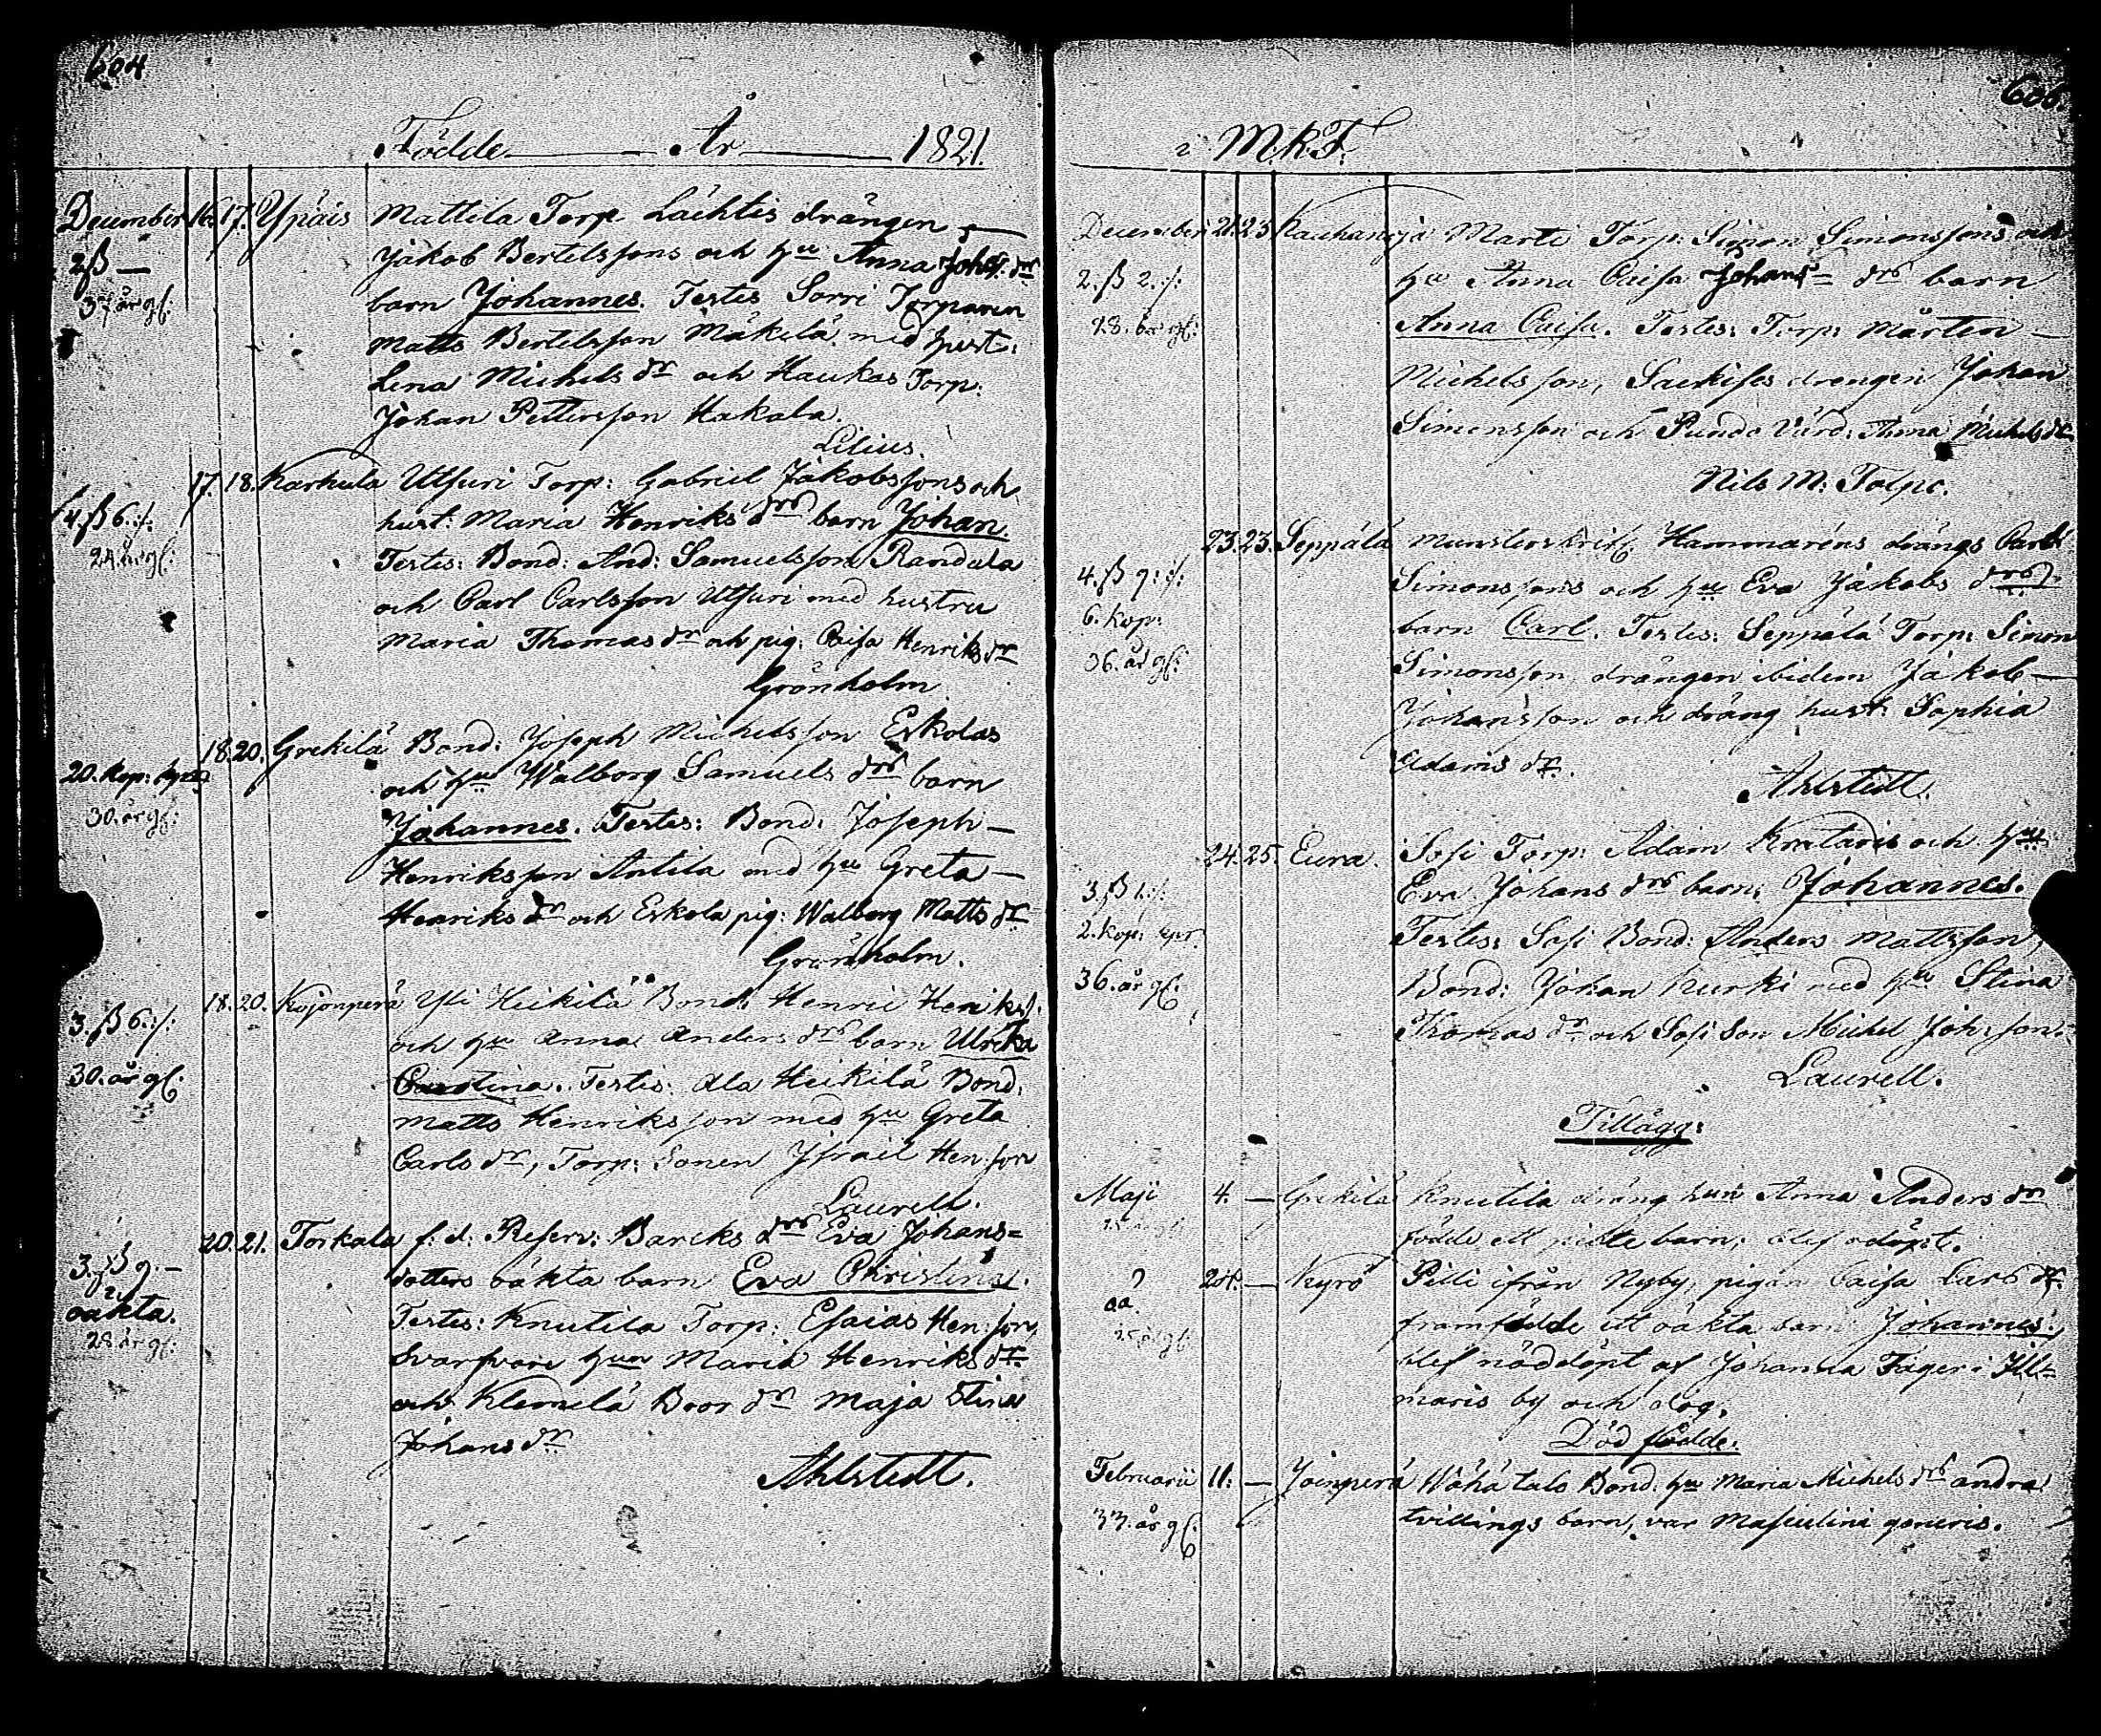 604
Födde År 1821.
December 16. 17. Ypäis Mattila Torp. Lächtis drängen
2 ß — Jakob Bertelssons och hu Anna Johs. dr
37. år gl: barn Johannes. Testes Sorri Torparen
Matts Bertelsson Mäkilä med hust:
Lena Michels dr och Haukas Torp:
Johan Pettersson Hakala.
Lilius.
17. 18. Karhula Utsuri Torp: Gabriel Jakobssons och
4. ß 6. :/: hust: Maria Henriks drs barn Johan.
24. år gl: Testes: Bond: And: Samuelsson Randala
och Carl Carlsson Utsuri med hustru
Maria Thomas dr och pig: Caisa Henriks dr
Grönholm
18. 20. Grekilä Bond: Joseph Michelsson Eskolas
20. kop: och hu Walborg Samuels drs barn
30. år gl: Johannes. Testes: Bond: Joseph —
Henriksson Antila med hu Greta —
Henriks dr och Eskola pig: Walborg Matts dr
Grönholm.
18. 20. Kojonperä Yli Heikilä Bond: Henric Henriks.
3. ß 6. :/: och hu Anna Anders drs barn Ulrika
30. år gl: Carolina. Testes: Ala Heikilä Bond:
Matts Henriksson med hu Greta
Carls dr, Torp: Sonen Israel Hen: son
Laurell.
20. 21. Torkala f: d: Reserv: Barcks drs Eva Johans=
3. ß 9. — dotters oäkta barn Eva Christina.
oäkta. Testes: Knutila Torp: Esaias Hen: son,
28 år gl: Svarfvare hun Maria Henriks dr
och Klemelä Bror dr Maja Stina
Johans dr
Ahlstedt.
606.
i M.k.F.
December 21. 23 Kauhanoja Marti Torp: Simon Simonssons och
2. ß 2. :/: hu Anna Caisa Johans drs barn
28. år gl: Anna Caisa. Testes: Torp: Mårten —
Michelsson, drängen Johan
Simonsson och Värd: Anna Michels dr
Nils M: Tolpo.
23. 23. Seppälä Munsterskrif: Hammaréns drängs Carl
4. ß 9: :/: Simonssons och hu Eva Jakobs drs
6. kop: barn Carl. Testes: Seppälä Torp: Simon
36. år gl: Simonsson, drängen ibidem Jakob —
Johansson och dräng hust: Sophia
Adams dr.
Ahlstedt.
24. 25. Eura. Sosi Torp: Adam och hu
3. ß 1. :/: Eva Johans drs barn, Johannes.
2. kop: Testes: Sosi Bond: Anders Mattsson,
36. år gl: Bond: Johan Kurki med hu Stina
Thomas dr och Sosi Son Michel Joh: son.
Laurell.
Tillägg:
Maji 4. — Grekilä Knutila dräng hun Anna Anders dr
födde ett barn, blef odöpt.
24. — Kyrö Pilli ifrån Nyby, pigan Caisa Lars dr
framfödde ett oäkta barn Johannes.
25 år gl: blef nöddöpt af Johanna Fager i Ill=
maris by och dog.
Död födde.
Februarii 11. — Joinperä Wähä talo Bond. hu Maria Michels drs andra
33. år gl. tvillings barn, var Masculini generis.